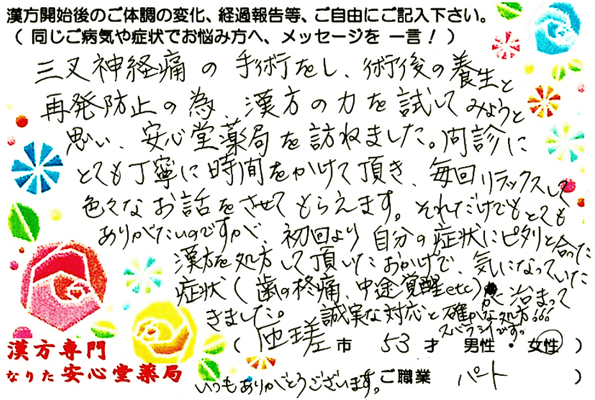 漢方開始後のご体調の変化、経過報告等、ご自由にご記入下さい。
（ 同じご病気や症状でお悩み方へ、メッセージを 一言！）
三叉神経痛の手術をし、術後の養生と
再発防止の為、漢方の力を試してみようと
思い、安心堂薬局を訪ねました。問診に
とても丁寧に時間をかけて頂き、毎回リラックスして
色々なお話をさせてもらえます。それだけでもとても
ありがたいのですが、初回より自分の症状にピタリと合った
漢方を処方して頂いたおかげで、気になっていた
症状（歯の疼痛、中途覚醒etc）が治まって
きました。誠実な対応と確かな処方。。。
スバラシイです。
（ 匝瑳 市 53 才 男性・女性 ）
いつもありがとうございます。 ご職業 パート ）
漢方専門
なりた安心堂薬局